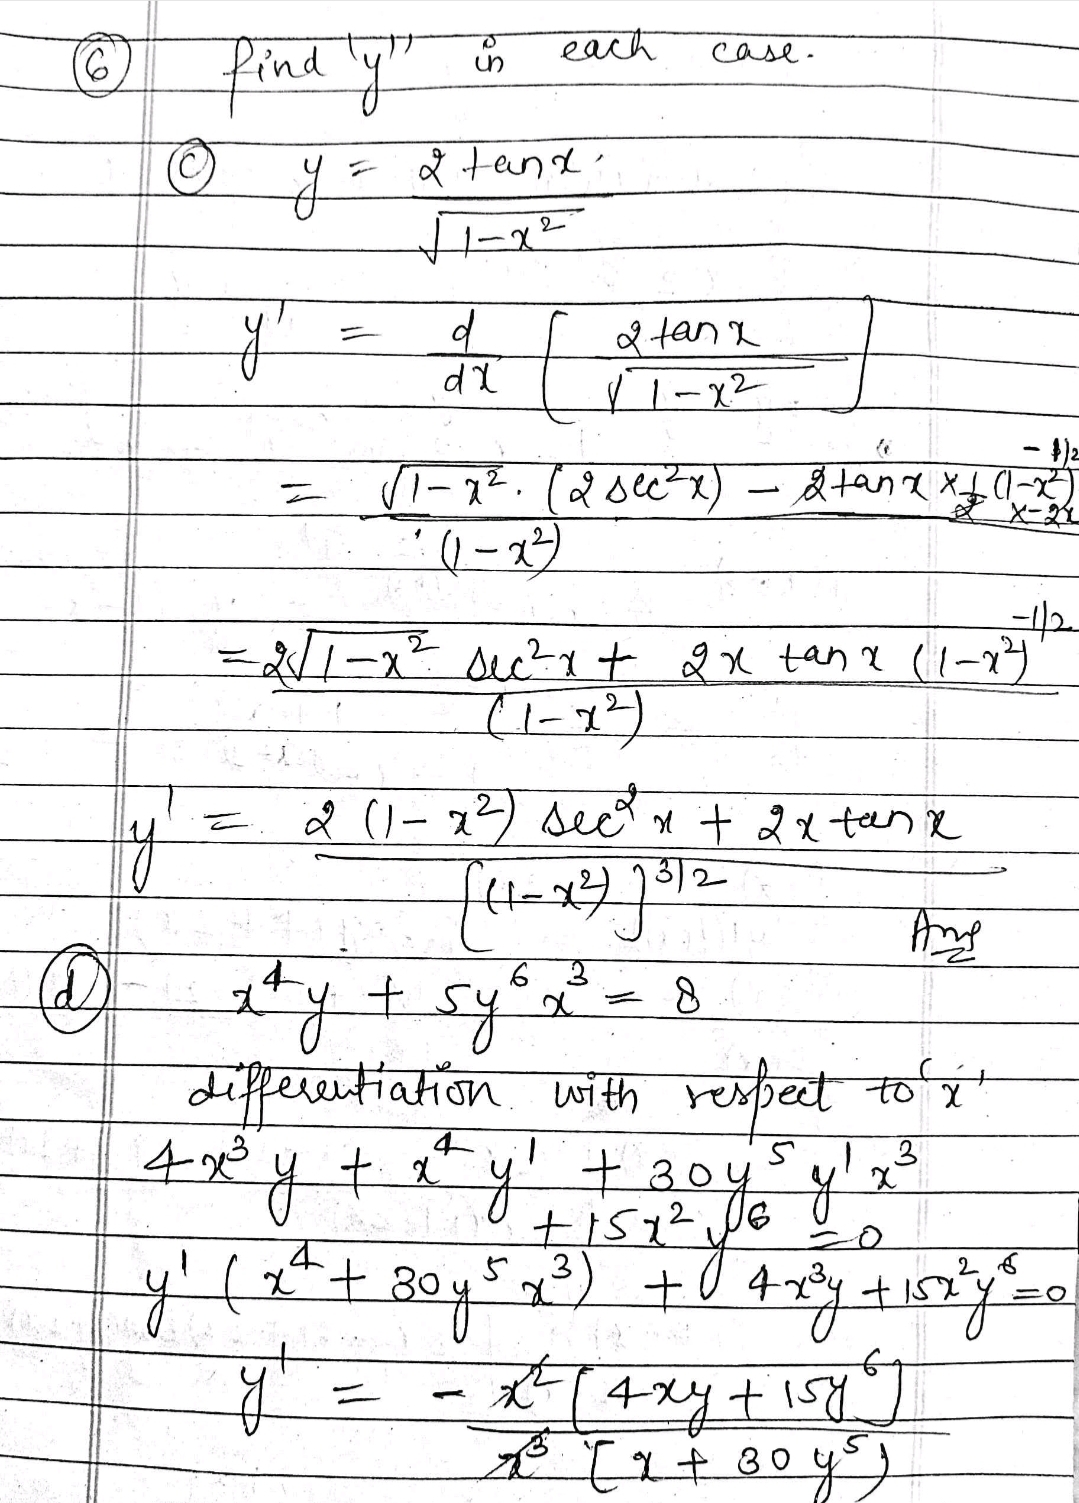 ⑥ find 'y'' in each case.
ⓒ y = 2 tanx / √(1-x²)
y' = d/dx [ 2 tanx / √(1-x²) ]
= √(1-x²) . (2 sec²x) - 2 tanx × 1/2 (1-x²)^(-1/2) × -2x / (1-x²)
= 2√(1-x²) sec²x + 2x tanx (1-x²)^(-1/2) / (1-x²)
y' = 2 (1-x²) sec²x + 2x tanx / [(1-x²)]^(3/2)
Ans
ⓓ x⁴y + 5y⁶x³ = 8
differentiation with respect to 'x'
4x³y + x⁴y' + 30y⁵y'x³
+ 15x²y⁶ = 0
y' (x⁴ + 30y⁵x³) + 4x³y + 15x²y⁶ = 0
y' = - x² [4xy + 15y⁶] / x³ [x + 30y⁵)